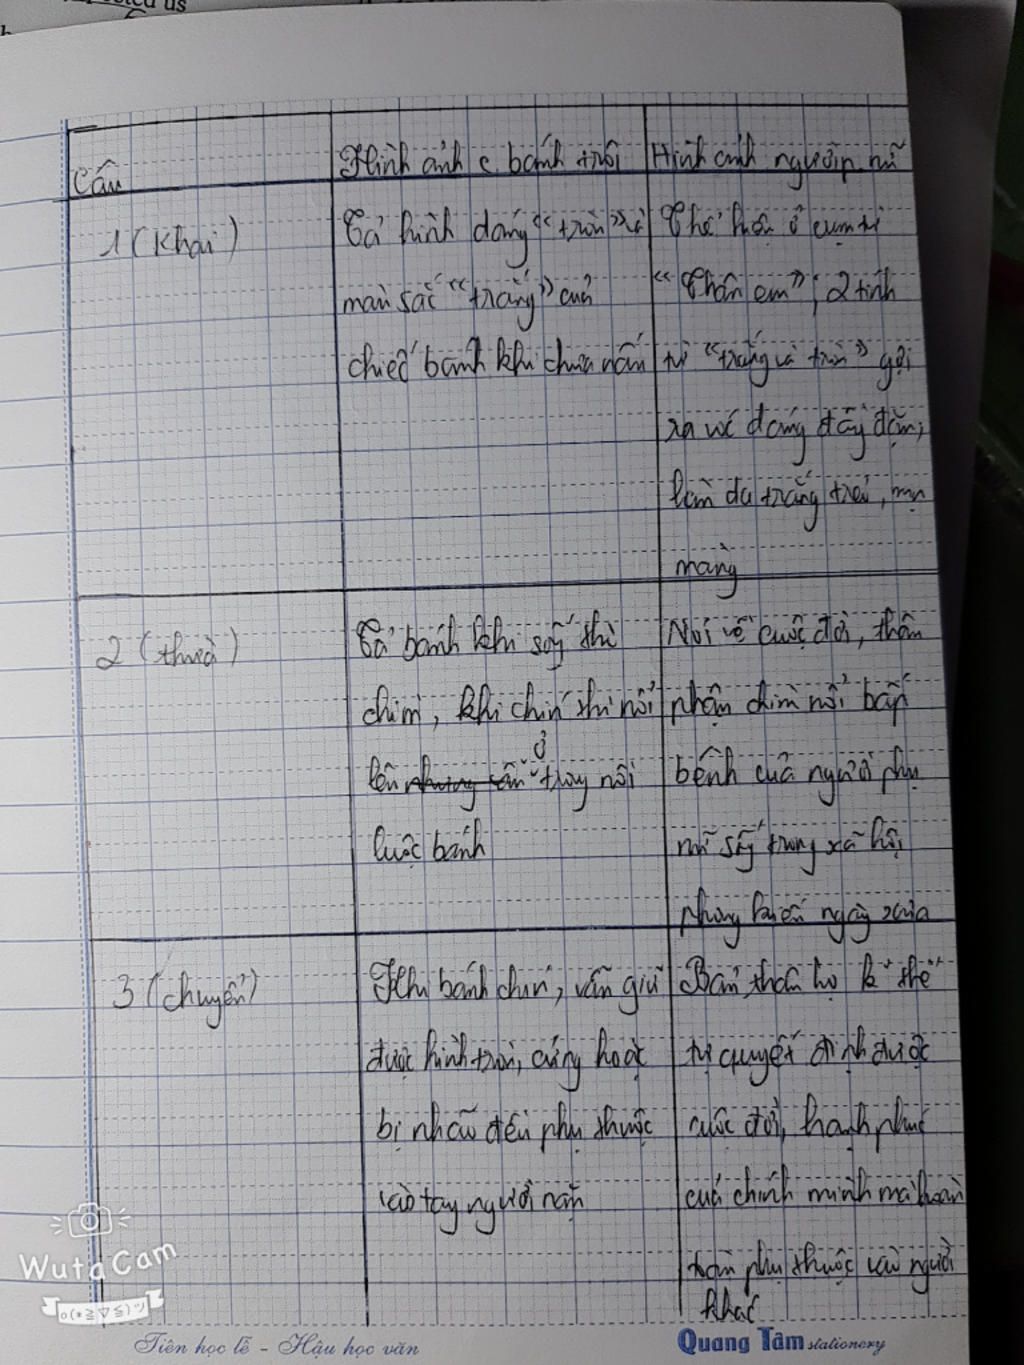 us
Câu
Hình ảnh c. bánh trôi
Hình ảnh người p. nữ
1 (Khai)
Tả hình dáng "tròn" và
màu sắc "trắng" của
chiếc bánh khi chưa nấu
Thể hiện ở cụm từ
"Thân em"; 2 tính
từ "trắng và tròn" gợi
ra vóc dáng đầy đặn,
làn da trắng trẻo, mịn
màng
2 (thừa)
Tả bánh khi sống thì
chìm, khi chín thì nổi
ở
lên trong nồi
luộc bánh
Nói về cuộc đời, thân
phận chìm nổi bấp
bênh của người phụ
nữ sống trong xã hội
phong kiến ngày xưa
3 (chuyển)
Khi bánh chín, vẫn giữ
được hình tròn, cứng hoặc
bị nhão đều phụ thuộc
vào tay người nặn
Bản thân họ k thể
tự quyết định được
cuộc đời, hạnh phúc
của chính mình mà hoàn
toàn phụ thuộc vào người
khác
WutaCam
Tiên học lễ - Hậu học văn
Quang Tâm stationery